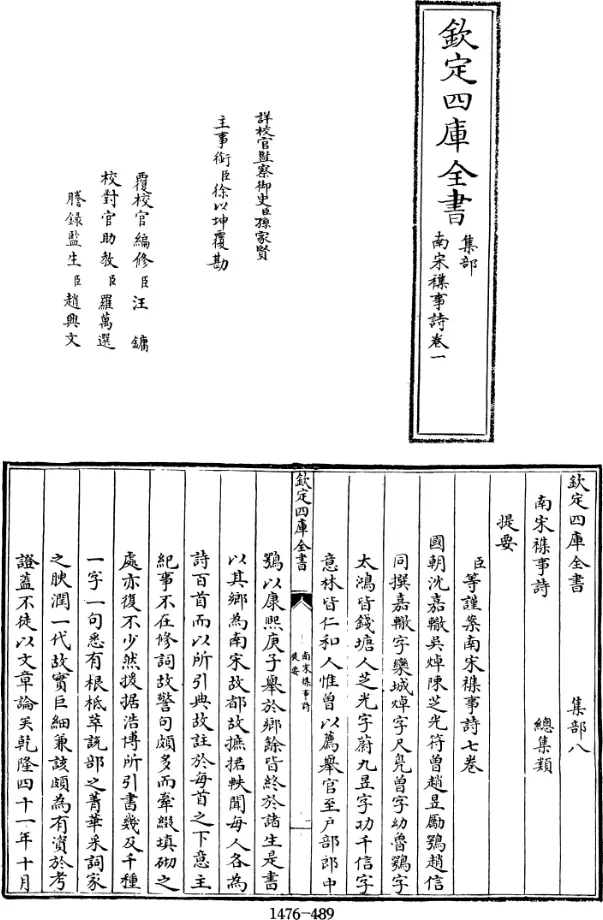 欽定四庫全書
集部
南宋襍事詩卷一
詳校官監察御史臣孫家賢
主事銜臣徐以坤覆勘
覆校官編修臣汪鏞
校對官助教臣羅萬選
謄錄監生臣趙興文
欽定四庫全書
集部八
南宋襍事詩
總集類
提要
臣等謹案南宋襍事詩七卷
國朝沈嘉轍吳焯陳芝光符曾趙昱厲鶚趙信
同撰嘉轍字欒城焯字尺鳧曾字幼魯鶚字
太鴻皆錢塘人芝光字蔚九昱字功千信字
意林皆仁和人惟曾以薦舉官至戶部郎中
欽定四庫全書
南宋襍事詩
提要
一
鶚以康熙庚子舉於鄉餘皆終於諸生是書
以其鄉為南宋故都故摭捃軼聞每人各為
詩百首而以所引典故註於每首之下意主
紀事不在修詞故警句頗多而牽綴填砌之
處亦復不少然援据浩博所引書幾及千種
一字一句悉有根柢萃說部之菁華采詞家
之腴潤一代故實巨細兼該頗為有資於考
證蓋不徒以文章論矣乾隆四十一年十月
1476-489